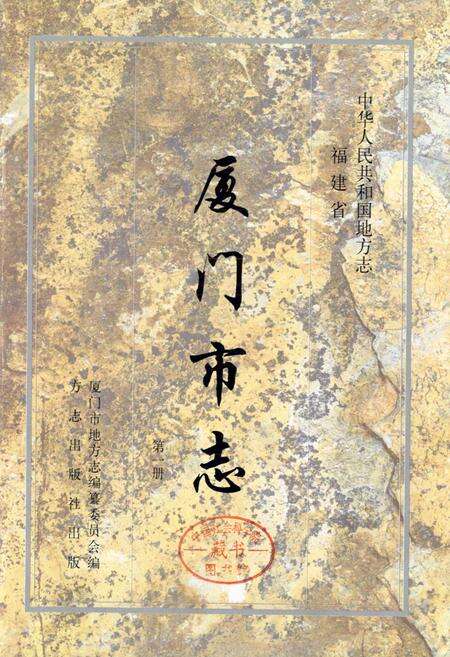 中华人民共和国地方志
福建省
厦门市志
第一册
厦门市地方志编纂委员会编
方志出版社出版
藏书
图书馆